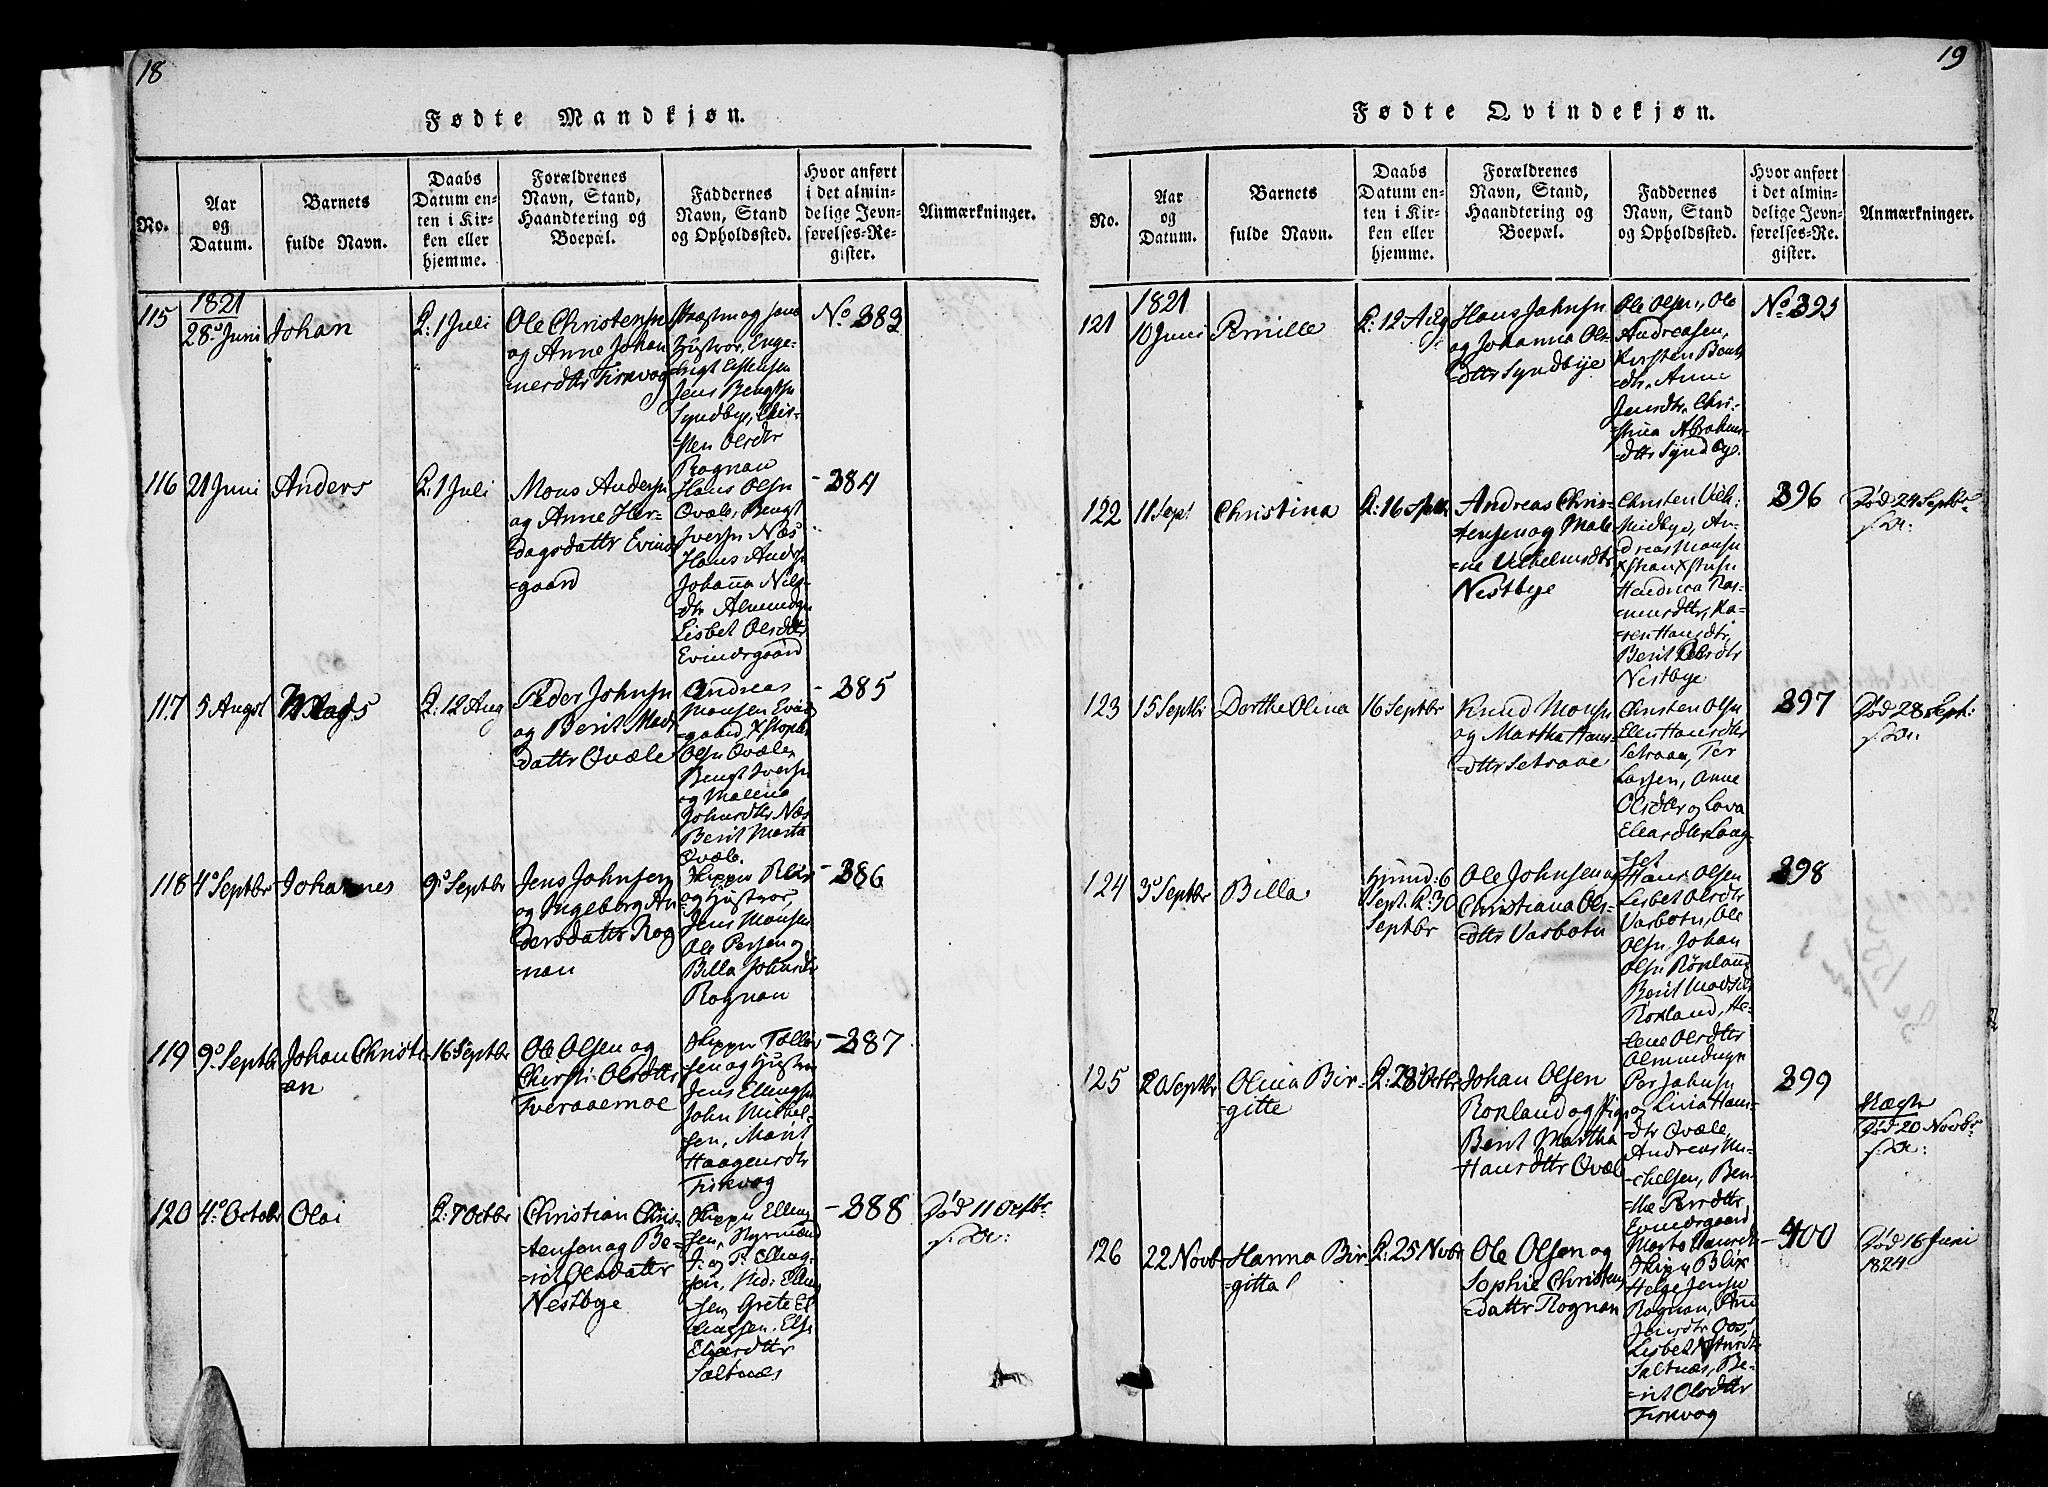 18
Fødte Mandkjøn.
No.
Aar
og
Datum.
Barnets
fulde Navn.
Daabs
Datum en-
ten i Kir-
ken eller
hjemme.
Forældrenes
Navn, Stand,
Haandtering og
Boepæl.
Faddernes
Navn, Stand
og Opholdssted.
Hvor anført
i det almin-
delige Jevn-
førelses-Re-
gister.
Anmærkninger.
115
1821
28 Juni
Johan
K: 1 Juli
Ole Christensn
og Anne Johan
nesdttr Fiskvog
og hans
Hustroe, Enge-
Jens Bengtsn
Syndbye,
Olsdtr
Rognan
No 383
116
21 Juni
Anders
K: 1 Juli
Mons Andersn
og Anne Her-
dagsdattr Evind
=gaard
Hans Olsn
Qvæle, Bengt
Iversn Næs
Hans Andersn
Johanna Nils-
dtr Almindgn
Lisbet Olsdttr
Evindsgaard
- 384
117
5 Augst
Mads
K: 12 Aug
Peder Johnsn
og Berit Mads
dattr Qvæle
Andreas
Monsen Evind
gaard,
Olsn Qvæle,
Bengt Iversn
og Malena
Johnsdttr Næs
Berit Marta
Qvæle.
- 385
118
4 Septbr
Johannes
9 Septbr
Jens Johnsen
og Ingeborg An
dersdattr Rog
=nan
og Hustroe,
Jens Monsen
Ole Persen og
Billa Johnsdtr
Rognan
- 386
119
9 Septbr
Johan Christi
an
16 Septbr
Ole Olsen og
Chersti Olsdttr
Tverraaemoe
Skipper
sen og Hustroe
Jens Ellingsn
John Mickel-
sen, Marit
Haagensdtr
Fiskvog
- 387
120
4 Octobr
Oloi
K: 7 Octbr
Christian Chris-
tensen og Be-
rit Olsdattr
Nestbye
Skipper Elling
sen,
J: og P: Elling-
sen, Elling
sen, Grete El-
lingsen, Else
Saltnæs
- 388
Død 11 Octbr.
19
Fødte Qvindekjøn.
No.
Aar
og
Datum.
Barnets
fulde Navn.
Daabs
Datum en-
ten i Kir-
ken eller
hjemme.
Forældrenes
Navn, Stand,
Haandtering og
Boepæl.
Faddernes
Navn, Stand
og Opholdssted.
Hvor anført
i det almin-
delige Jevn-
førelses-Re-
gister.
Anmærkninger.
121
1821
10 Juni
Pernille
K: 12 Aug
Hans Johnsn
og Johanna Ols-
dttr Syndbye
Ole Olsn, Ole
Andreasen,
Kirsten Bents
dtr, Anne
Jensdtr, Chri-
stina Abrahams-
dttr Syndbye.
No. 395
122
11 Sept
Christina
K: 16 Septbr
Andreas Chris-
tensen og Male
ne Vilhelmsdtr
Nestbye
Christen Vilh:
Midbye, An-
dreas Monsn
Hendrica Ras-
musdttr, Ka-
ren Hansdtr,
Berit Olsdtr
Nestbye
396
Død 24 Septbr
123
15 Septbr
Dorthe Olina
16 Septbr
Knud Monsn
og Martha Hans-
dttr Setraae
Christen Olsn
Ellen Hansdttr
Setraae, Per
Larsen, Anne
Olsdttr og Lova
Eliasdttr Laag-
set
397
Død 28 Sept:
124
3 Septbr
Billa
Hjemd: 6
Sept. K: 30
Septbr
Ole Johnsen og
Christiana Ols-
dttr Vasbotn
Hans Olsen
Lisbet Olsdtr
Vasbotn, Ole
Olsn, Johan
Olsn Roxland
Berit Madsdt
Roxland, He-
lene Olsdttr
Almindingn
398
125
20 Septbr
Olina Bir-
=gitte
K: 28 Octbr
Johan Olsen
Roxland og Pige
Berit Martha
Hansdttr Qvæle
Per Johnsn
og Lina Hans-
dtr Qvæle,
Andreas Mi-
chelsen, Ben-
the Persdttr
Evindsgaard
399
Uægte
Død 20 Novbr
126
22 Novb
Hanna Bir-
=gitta
K: 25 Novbr
Ole Olsen og
Sophie Christens
=dattr Rognan
Marta Hansdtr
Skipper Blix
Helge Jensn
Rognan, Ane
Jensdtr
Lisbet
Saltnæs, Be-
rit Olsdttr
Fiskvog
- 400
Død 16 Juni
1824